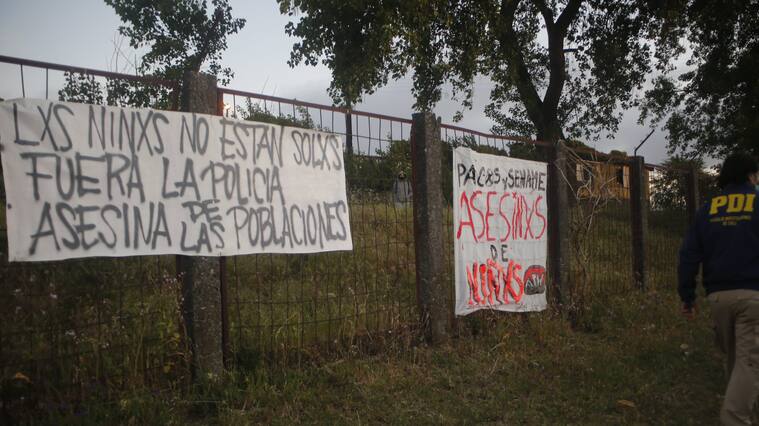 LXS NINXS NO ESTAN SOLXS
FUERA LA POLICIA
ASESINA DE
LAS POBLACIONES
PACXS Y SENAME
ASESINXS
DE
NIÑXS
PDI